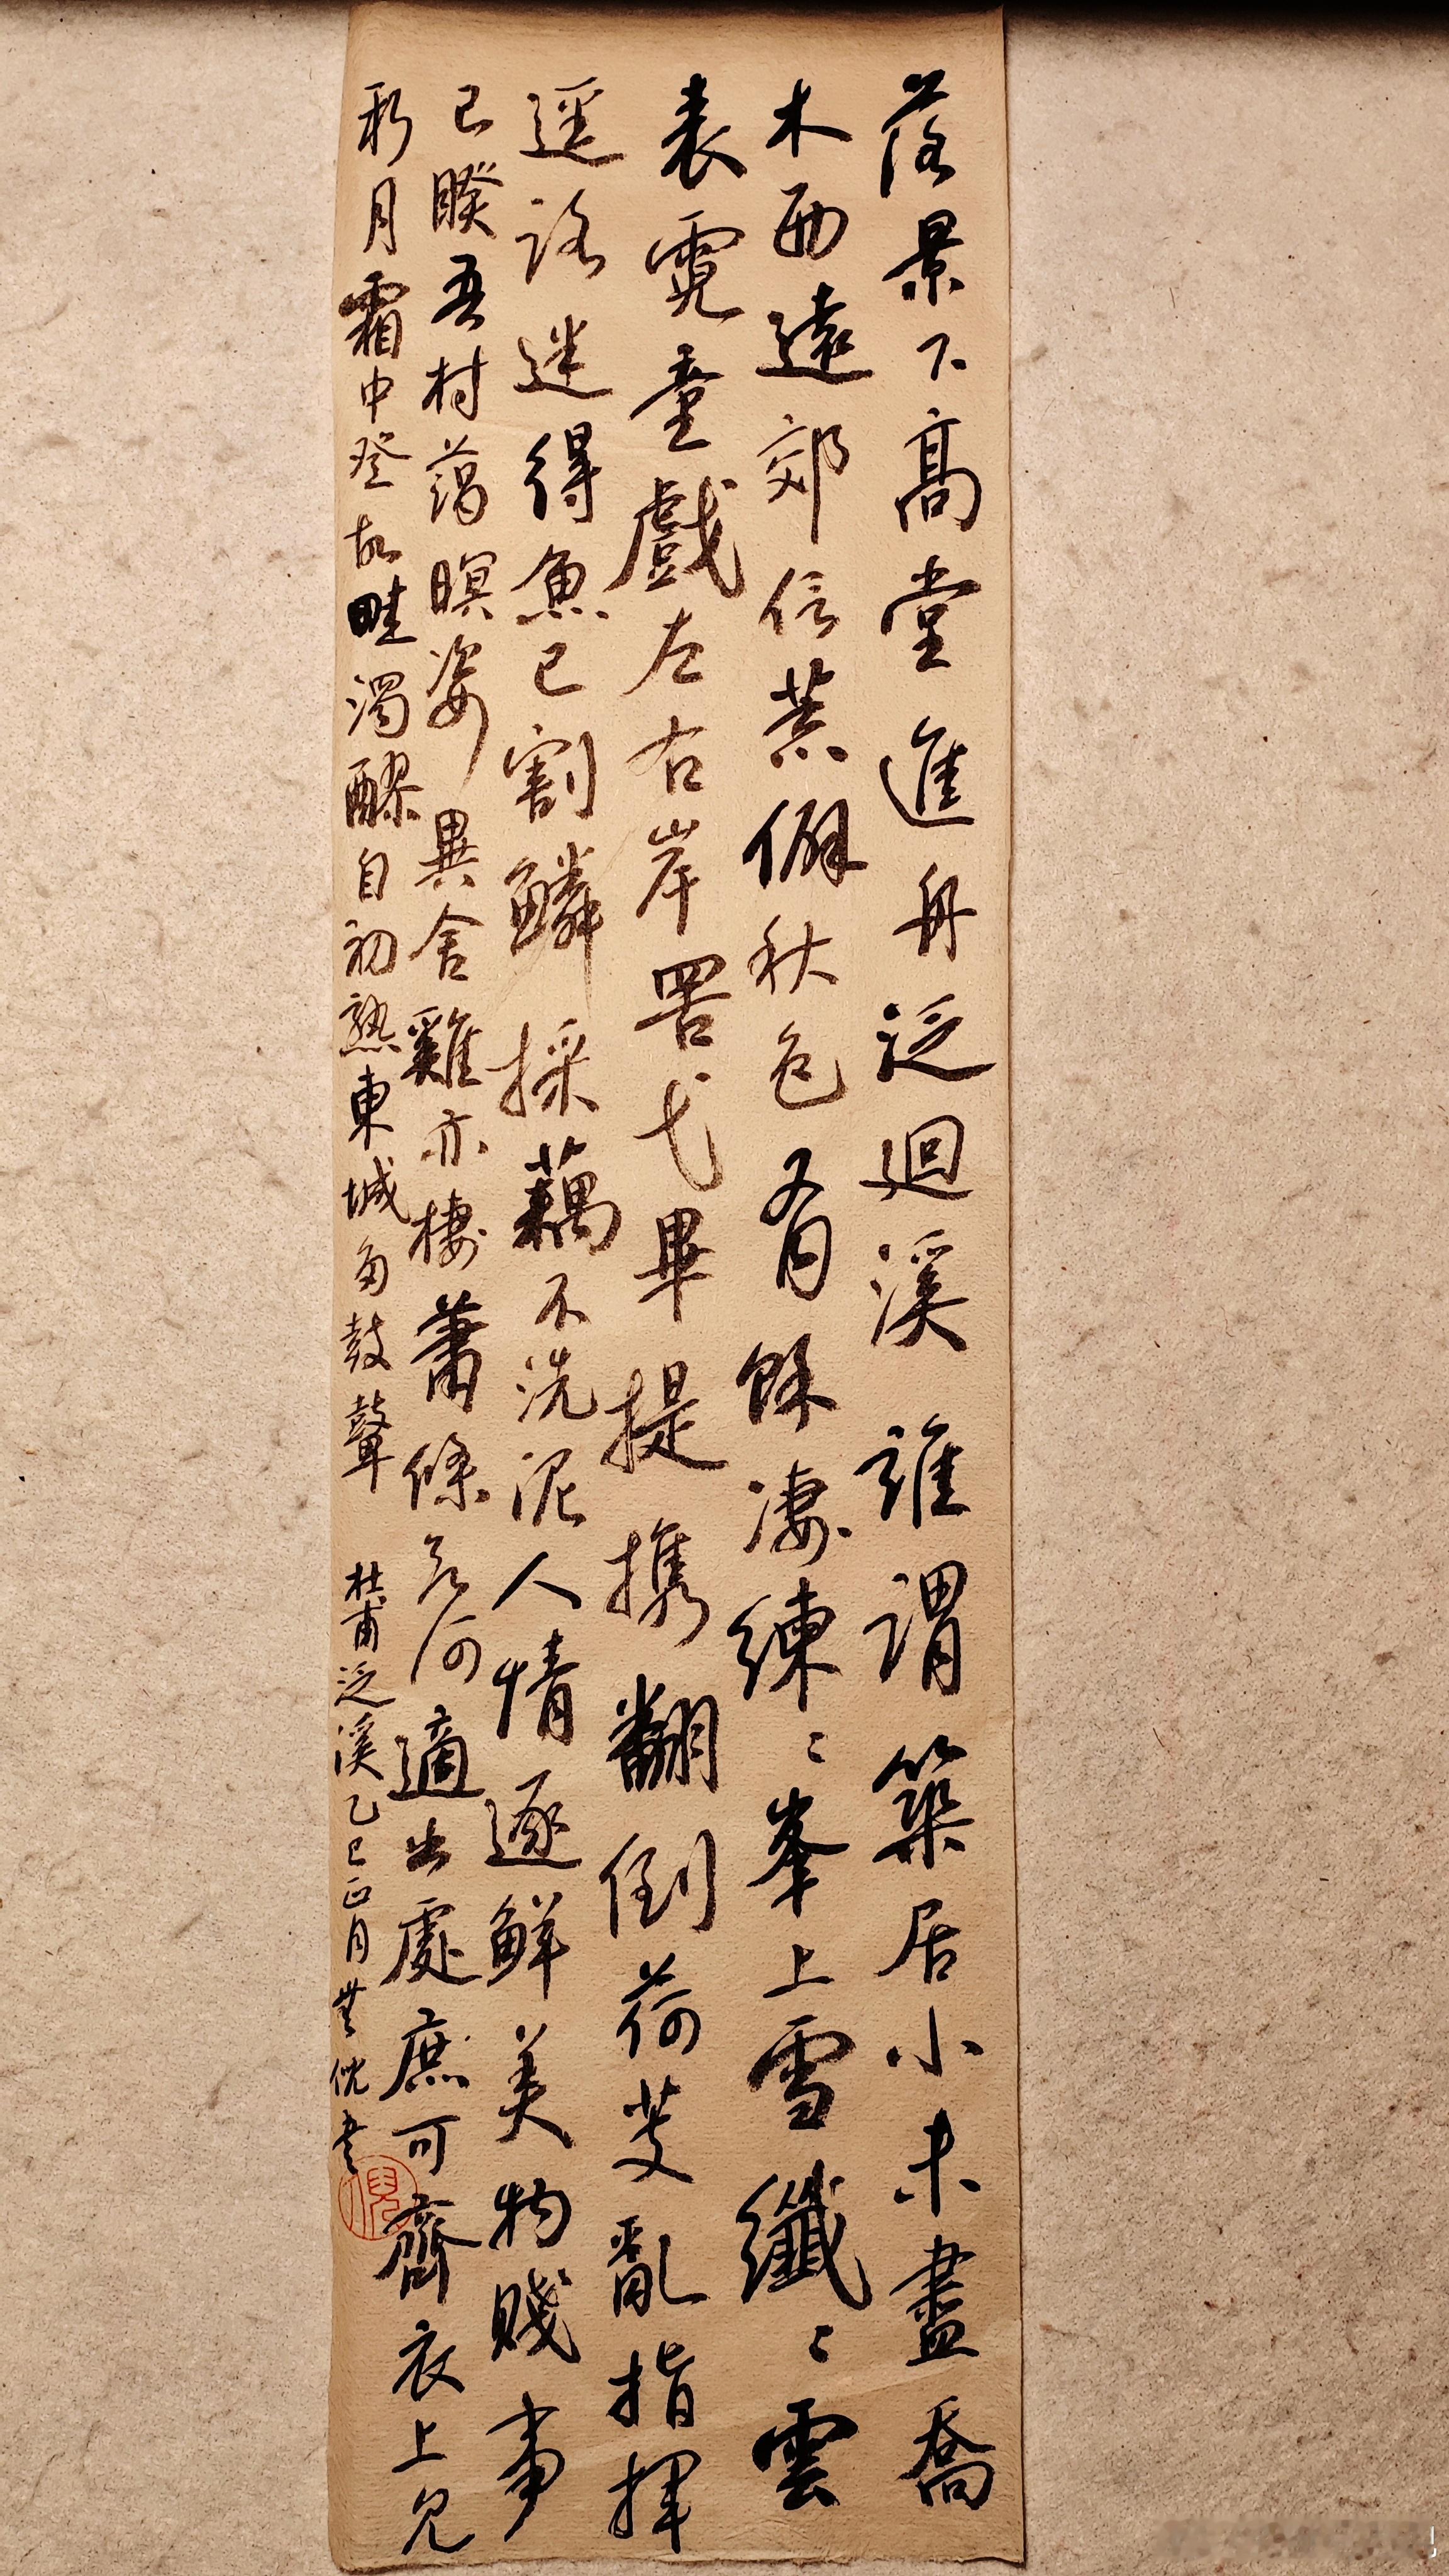 落景下高堂進舟泛迴溪誰謂築居小未盡喬
木西遠郊信荒僻秋色有餘凄練〻峯上雪纖〻雲
表霓童戲左右岸罟弋畢提攜翻倒荷芰亂指揮
逕路迷得魚已割鱗採藕不洗泥人情逐鮮美物賤事
已睽吾村藹暝姿異舍雞亦棲蕭條欲何適出處庶可齊衣上見
新月霜中登故畦濁醪自初熟東城多鼓鼙
杜甫泛溪乙巳正月 倪書
倪